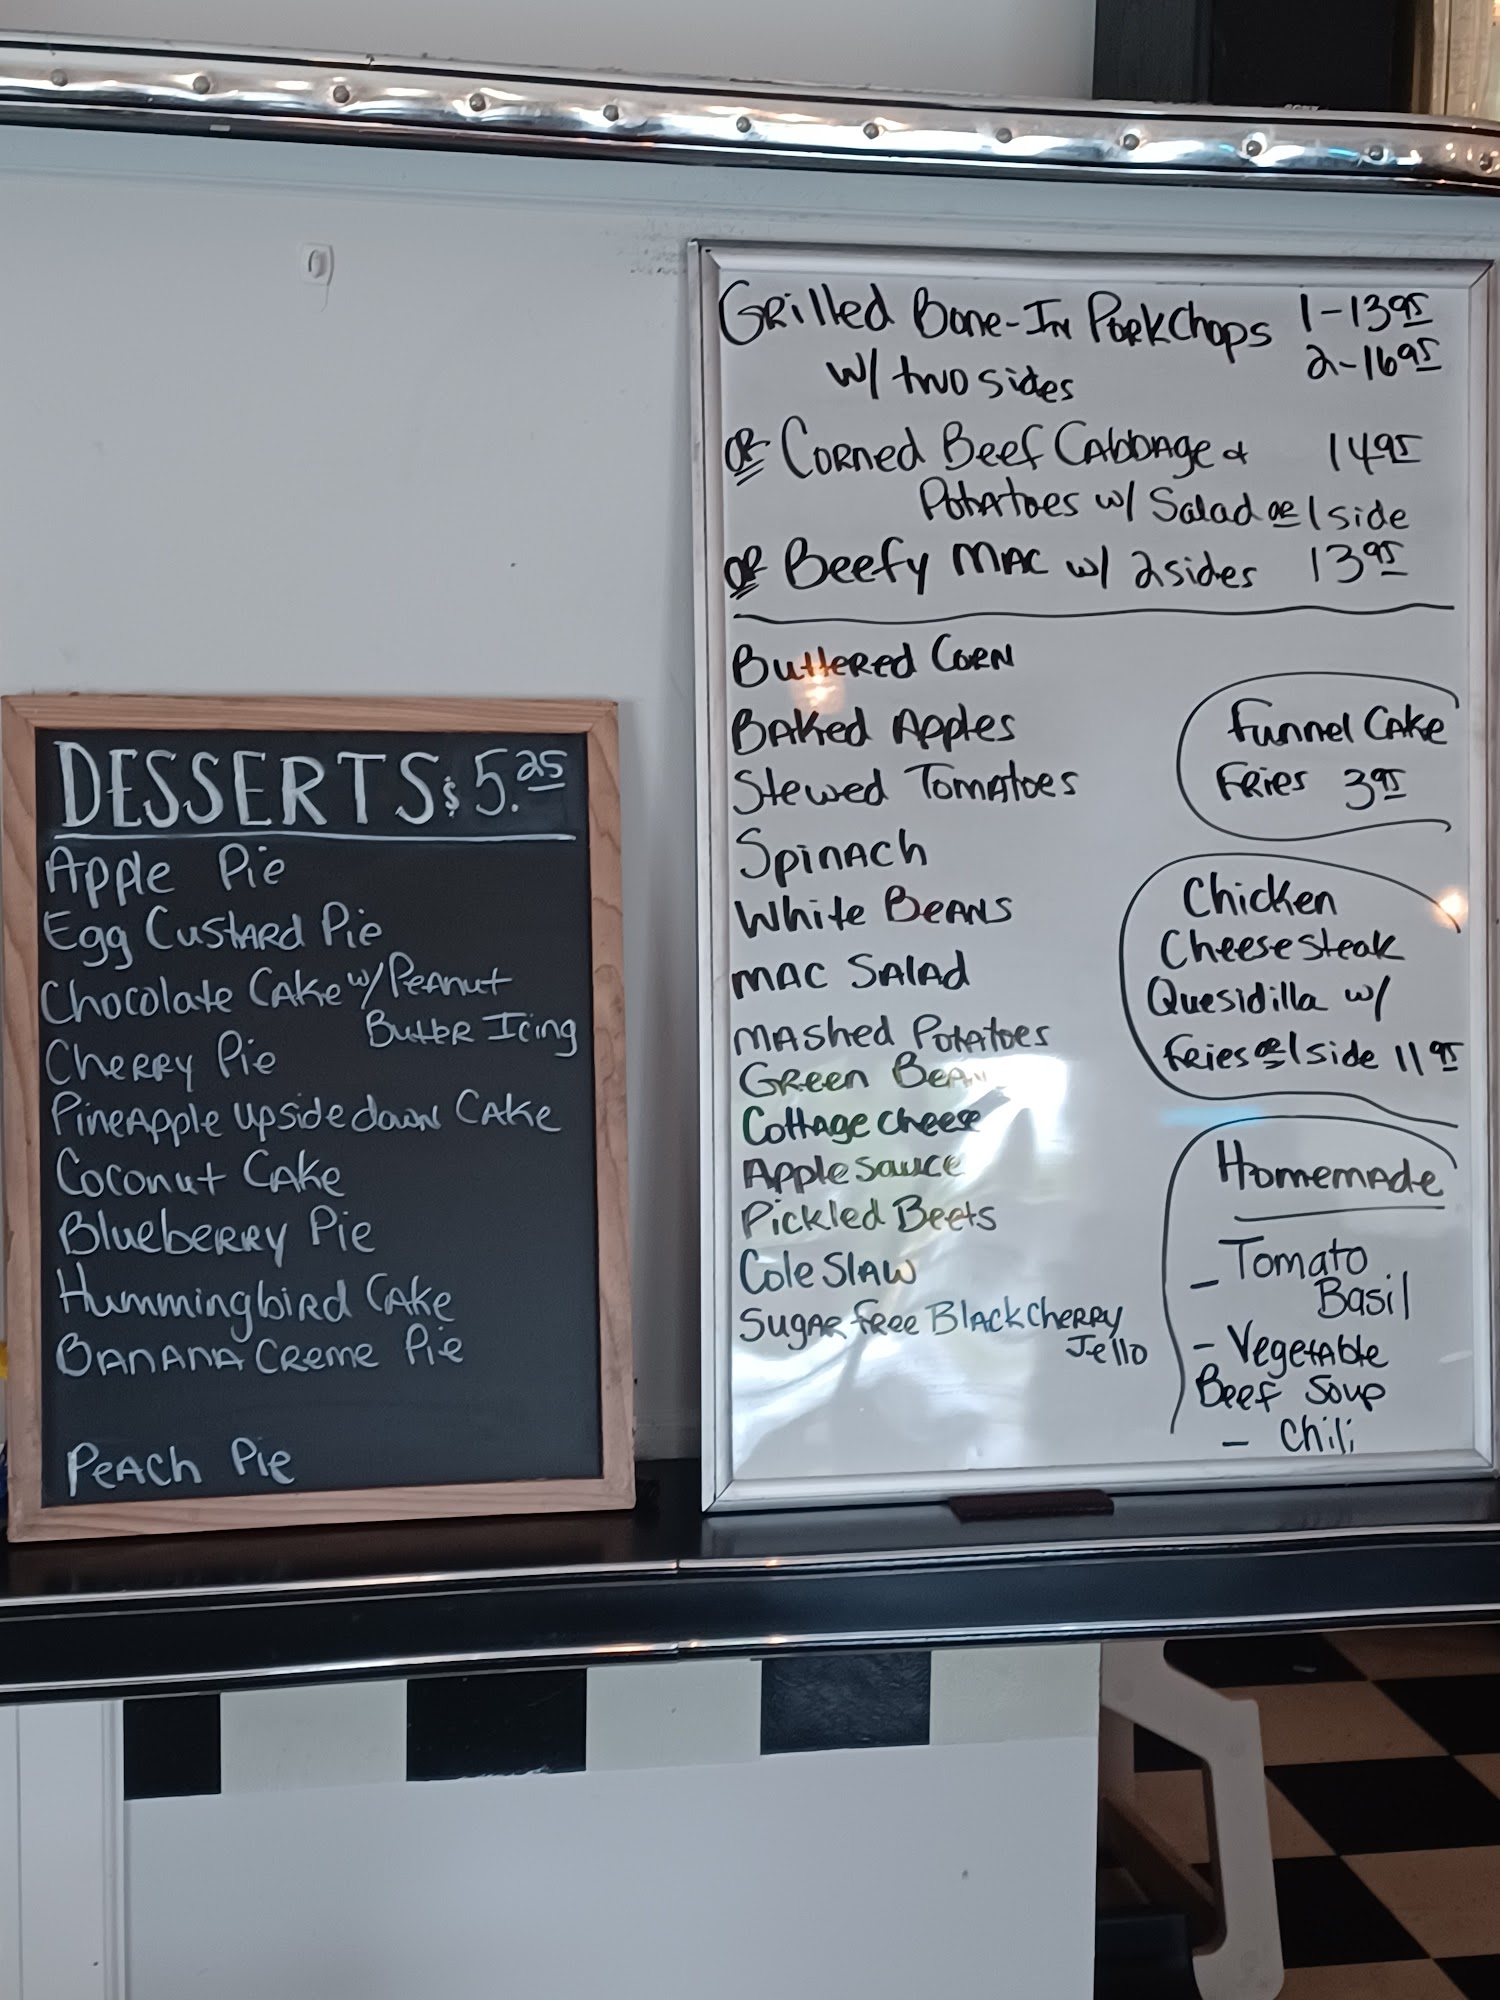 DESSERTS $5.25
Apple Pie
Egg Custard Pie
Chocolate Cake w/ Peanut
Butter Icing
Cherry Pie
Pineapple upside down Cake
Coconut Cake
Blueberry Pie
Hummingbird Cake
Banana Creme Pie
Peach Pie
Grilled Bone-In Pork Chops 1-13.95
w/ two sides 2-16.95
or Corned Beef Cabbage & 14.95
Potatoes w/ Salad or 1 side
or Beefy Mac w/ 2 sides 13.95
Buttered Corn
Baked Apples
Stewed Tomatoes
Spinach
White Beans
Mac Salad
Mashed Potatoes
Green
Cottage Cheese
Apple Sauce
Pickled Beets
Cole Slaw
Sugar free Black Cherry
Jello
Funnel Cake
Fries 3.95
Chicken
Cheese steak
Quesidilla w/
fries or 1 side 11.95
Homemade
- Tomato
Basil
- Vegetable
Beef Soup
- Chili